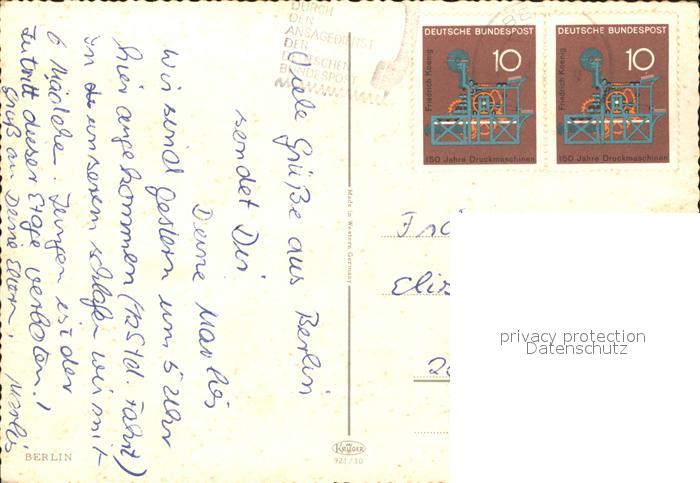 DURCH
DEN
ANSAGEDIENST
DER
DEUTSCHEN
BUNDESPOST
Viele Grüße aus Berlin
sendet Dir
Deine Marlies
Wir sind gestern um 5 Uhr
hier angekommen (12 Std. Fahrt)
in unserem schlafen wir mit
6 Mädchen. Jungen ist der
Zutritt dieser Etage verboten!
Gruß an Deine Eltern. Marlis
BERLIN
Made in Western Germany
KRÜGER
921/30
DEUTSCHE BUNDESPOST
10
Friedrich Koenig
150 Jahre Druckmaschinen
DEUTSCHE BUNDESPOST
10
Friedrich Koenig
150 Jahre Druckmaschinen
privacy protection
Datenschutz